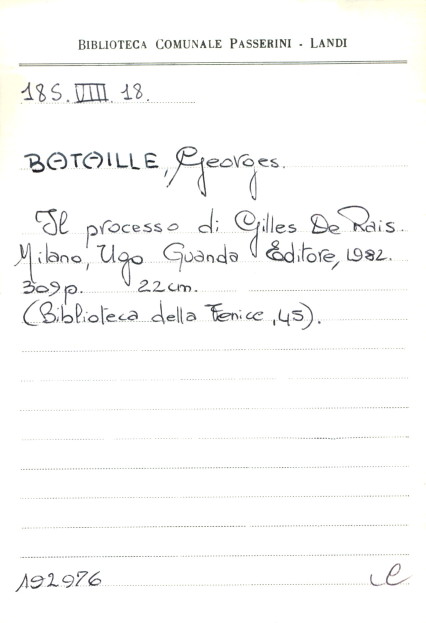 BIBLIOTECA COMUNALE PASSERINI - LANDI
18S. VIIII. 18.
BATAILLE, Georges.
Il processo di Gilles De Rais.
Milano, Ugo Guanda Editore, 1982.
309p. 22cm.
(Biblioteca della Fenice, 45).
192976